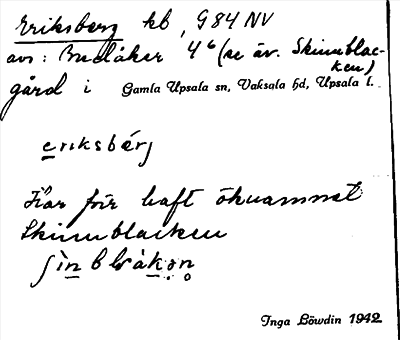 Eriksberg kb, G84 NV
avs: Budåker 4⁶ (se äv. Skinnblac-
ken)
gård i Gamla Upsala sn, Vaksala hd, Upsala l.
eriksbérj
Har förr haft öknamnet
Skinnblacken
ʃìnblàkən
Inga Löwdin 1942.